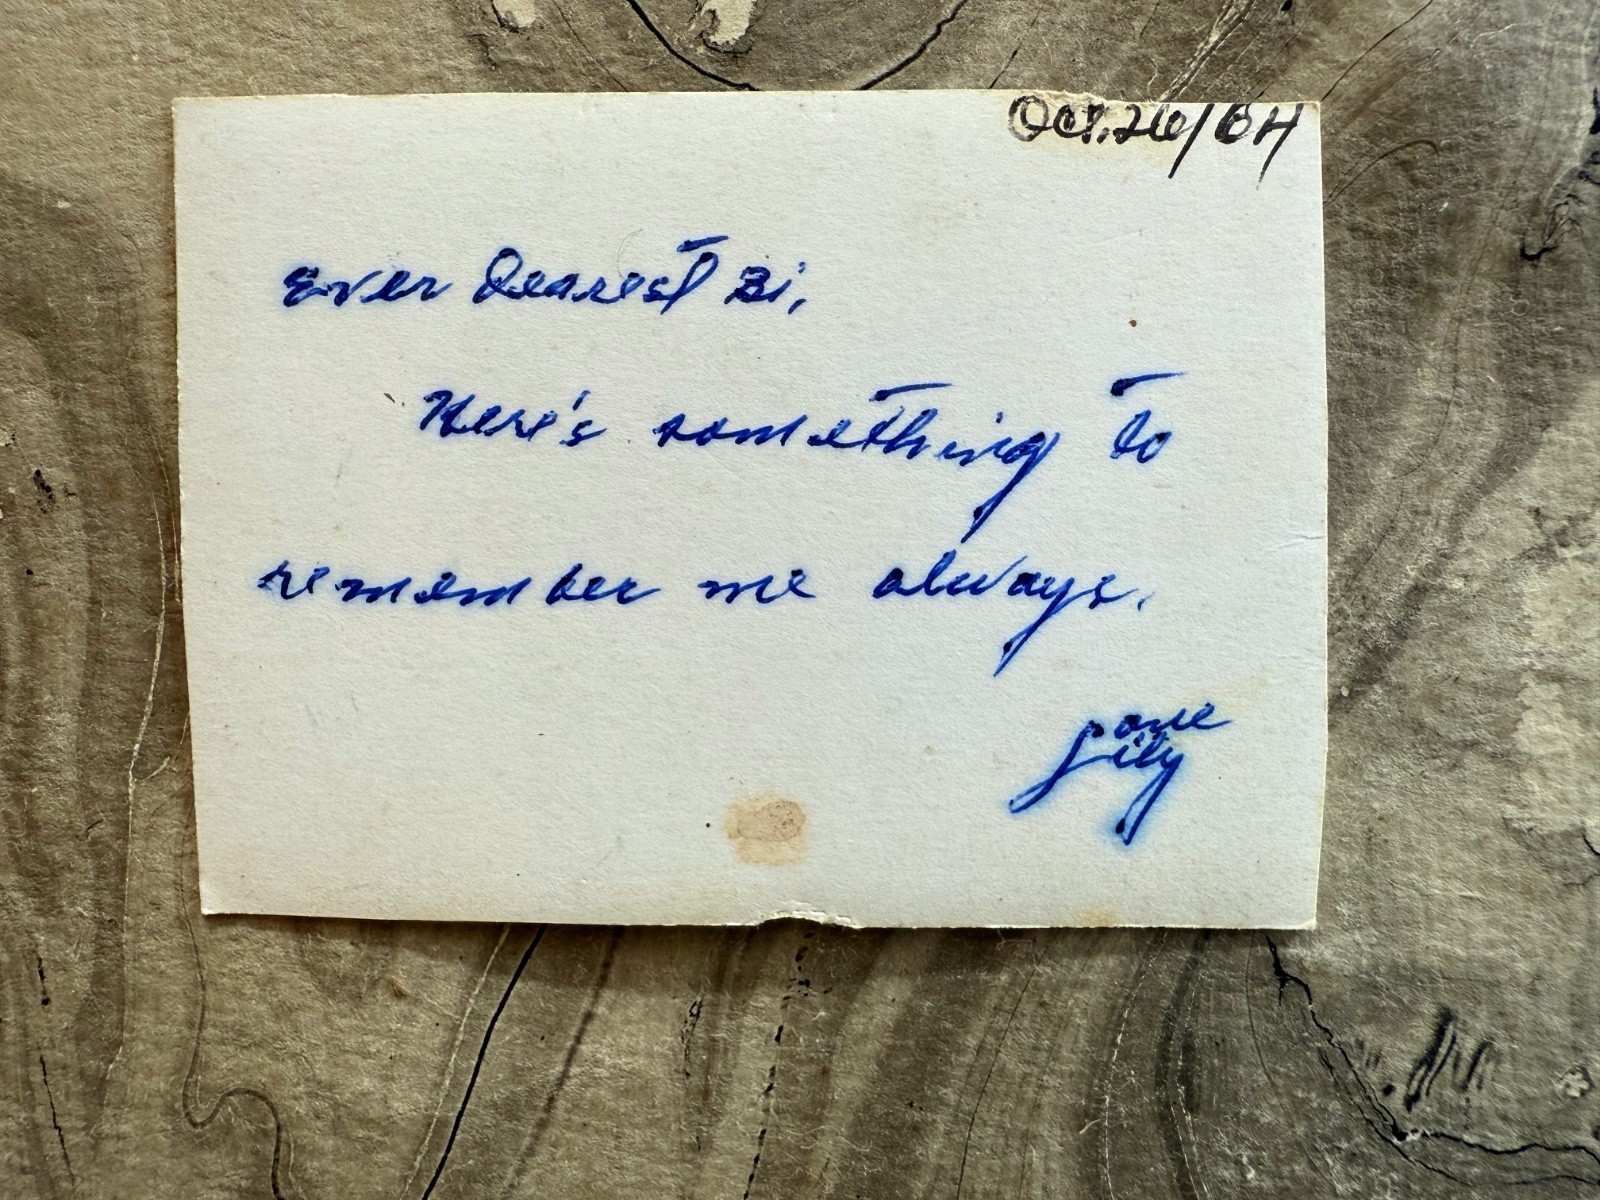 Oct. 26/64
Ever Dearest Bi,
Here's something to
remember me always.
Love
Lily